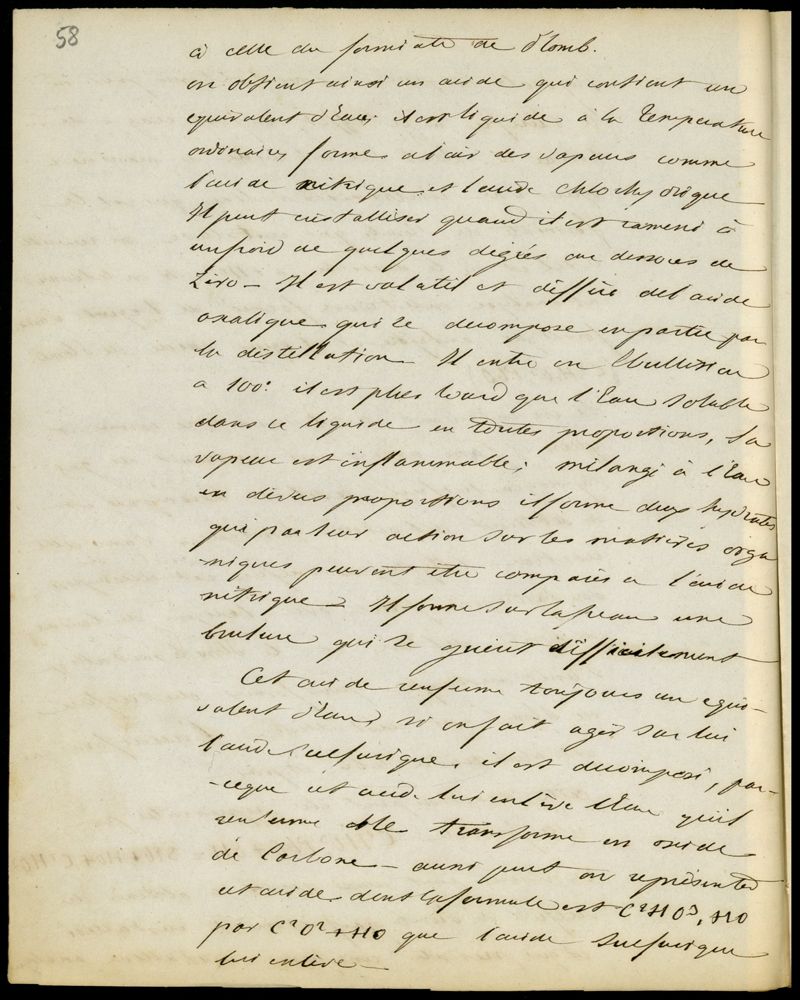 58
à celle du formiate de Plomb.
on obtient ainsi un acide qui contient un
equivalent d'Eau, il est liquide à la temperature
ordinaire, forme a l'air des vapeurs comme
l'acide nitrique et l'acide chlorhydrique
Il peut cristalliser quand il est ramené à
un froid de quelques degrés au dessous de
Zero – Il est volatil et diffère de l'acide
oxalique qui se decompose en partie par
la distillation Il entre en Ebullition
a 100° il est plus lourd que l'Eau soluble
dans ce liquide en toutes proportions, sa
vapeur est inflammable; mélangé à l'Eau
en divers proportions il forme deux hydrates
qui par leur action sur les matières orga
-niques peuvent être comparés a l'acide
nitrique – Il forme sur la peau une
brulure qui se guérit difficilement
Cet acide renferme toujours un equi-
valent d'Eau, si on fait agir sur lui
l'acide sulfurique, il est decomposé, par-
-ceque cet acide lui enlève l'Eau qu'il
renferme et le transforme en oxide
de Carbone – aussi peut on représenter
cet acide dont la formule est C²HO³, HO
par C²O² + HO que l'acide sulfurique
lui enlève –